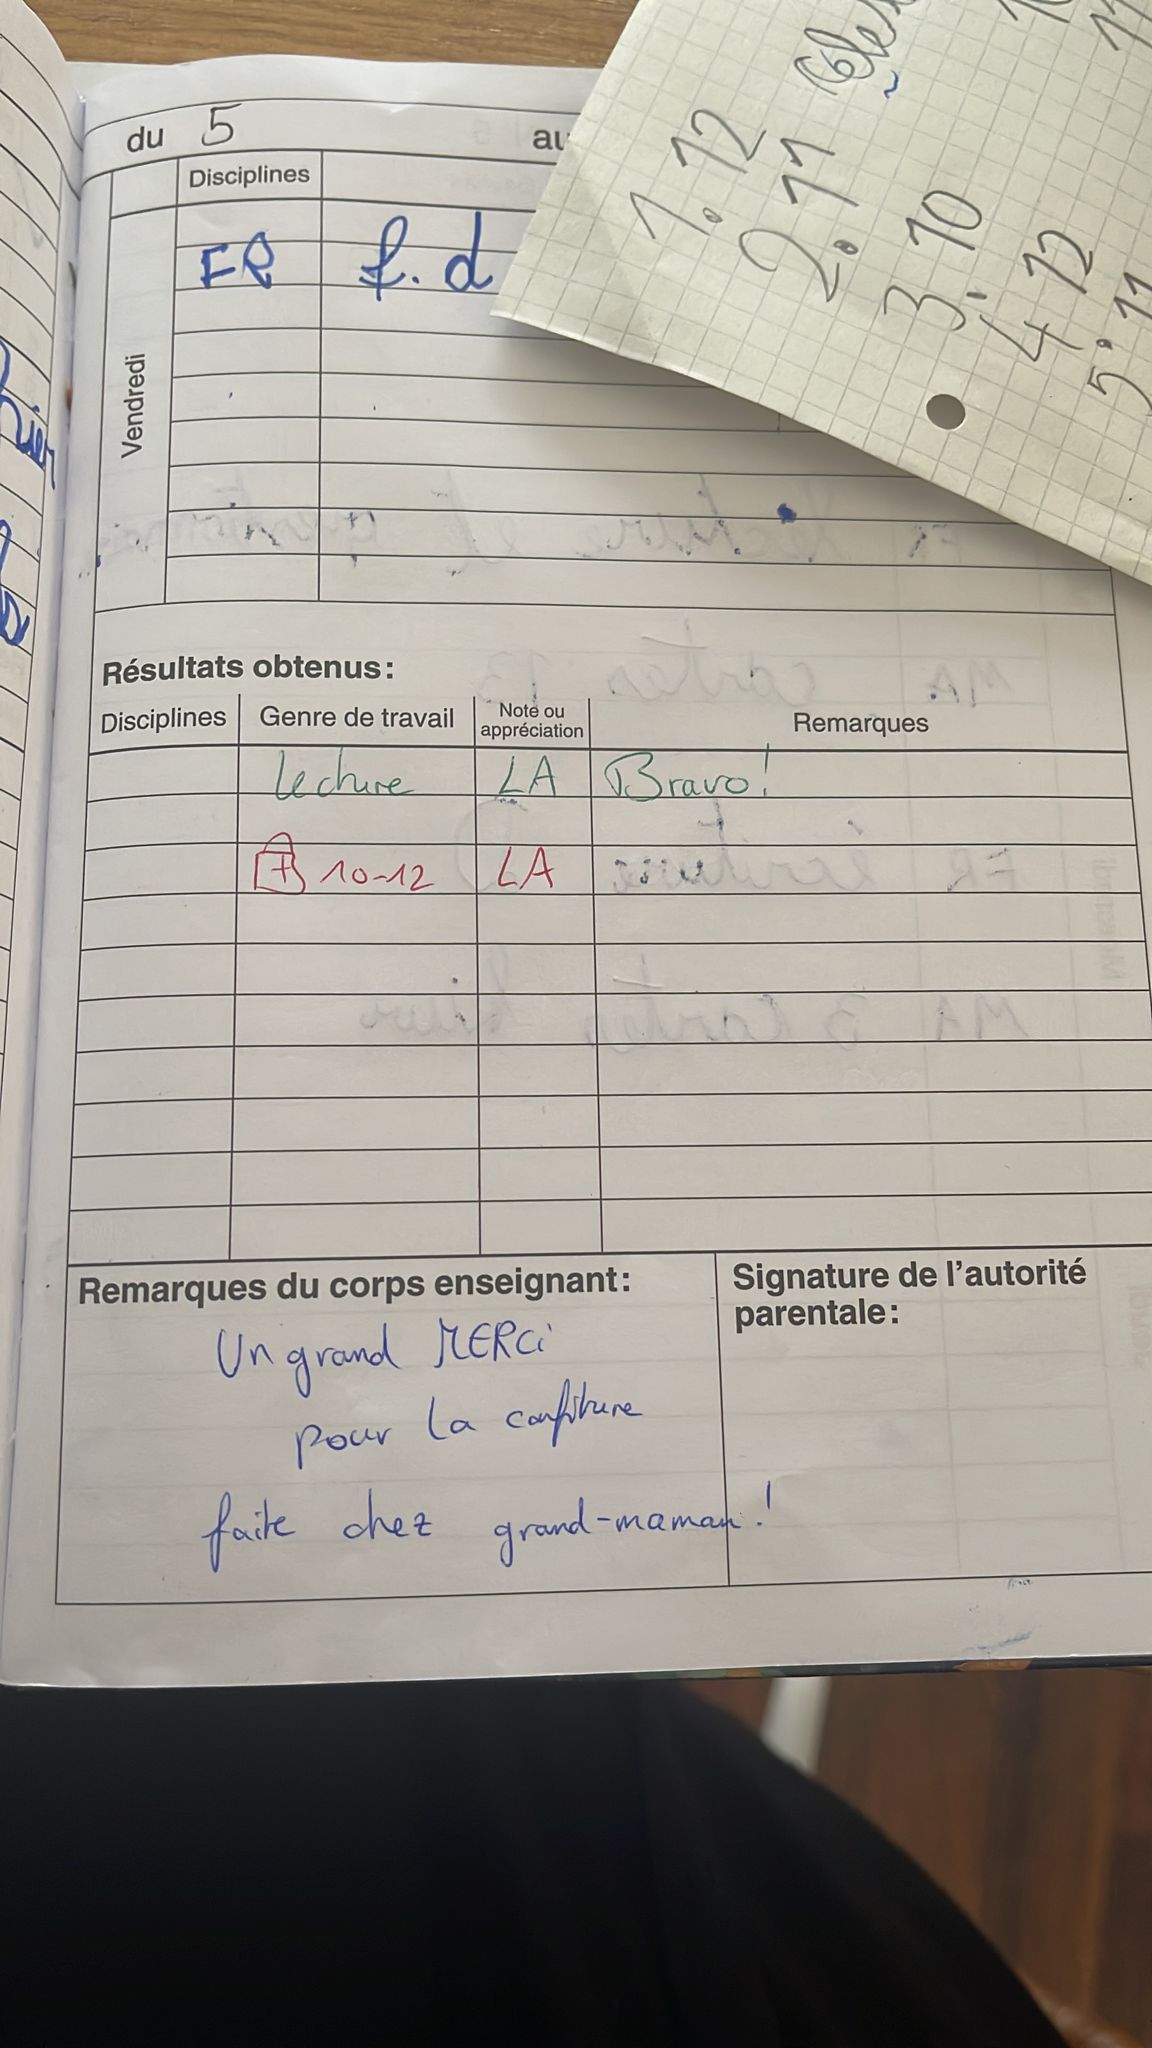 du 5 au
Disciplines
FR f. d
Vendredi
1. 12
2. 11
3. 10
4. 12
5. 11
Résultats obtenus:
Disciplines Genre de travail Note ou appréciation Remarques
lecture LA Bravo!
+ 10-12 LA
Remarques du corps enseignant:
Un grand MERCi
pour la confiture
faite chez grand-maman!
Signature de l'autorité
parentale: